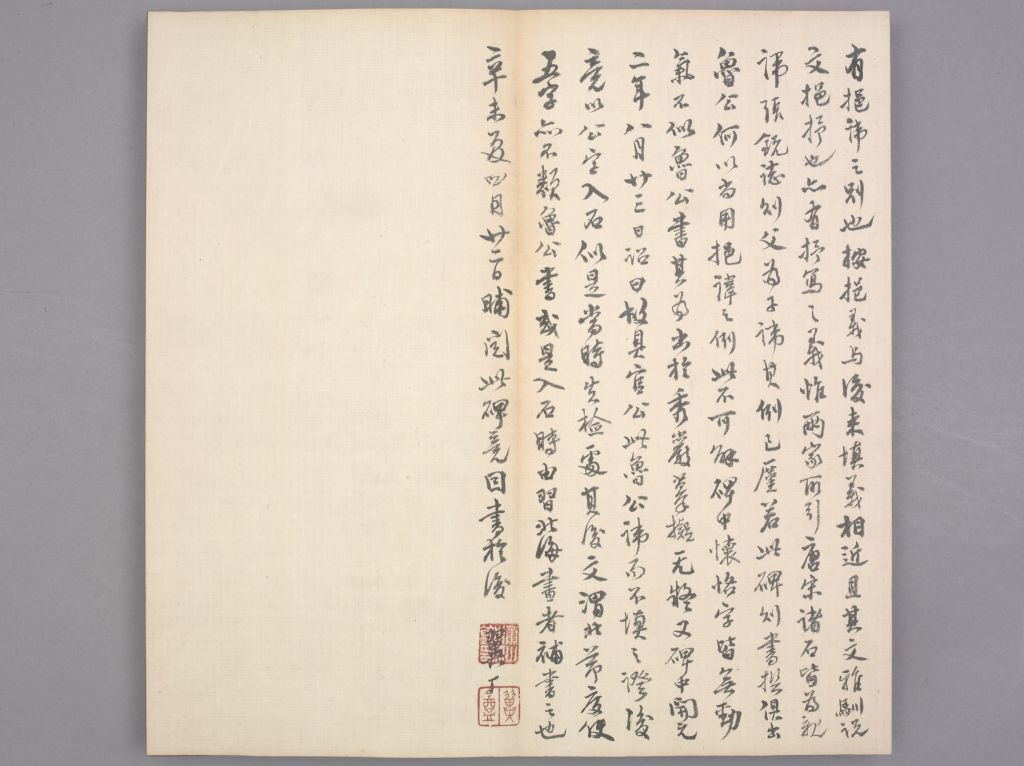 有挹諱之别也按挹義与後来填義相近且其文雅馴说
文挹抒也亦有抒寫之義惟兩家所引唐宋諸石皆為親
諱張銳志则父為子諱其例已廑若此碑则書撰俱出
魯公何以尚用挹諱之例此不可解碑中懷悟字皆無動
氣不似魯公書其為出於秀巖摹擬无疑又碑中開元
二年八月廿三日詔曰故具官公此魯公諱而不填之證後
竟以公字入石似是當時失檢處其後文渭北節度使
五字亦不類魯公書或是入石時由習北海書者補書之也
辛未夏四月廿二日晡閲此碑竟因書於後